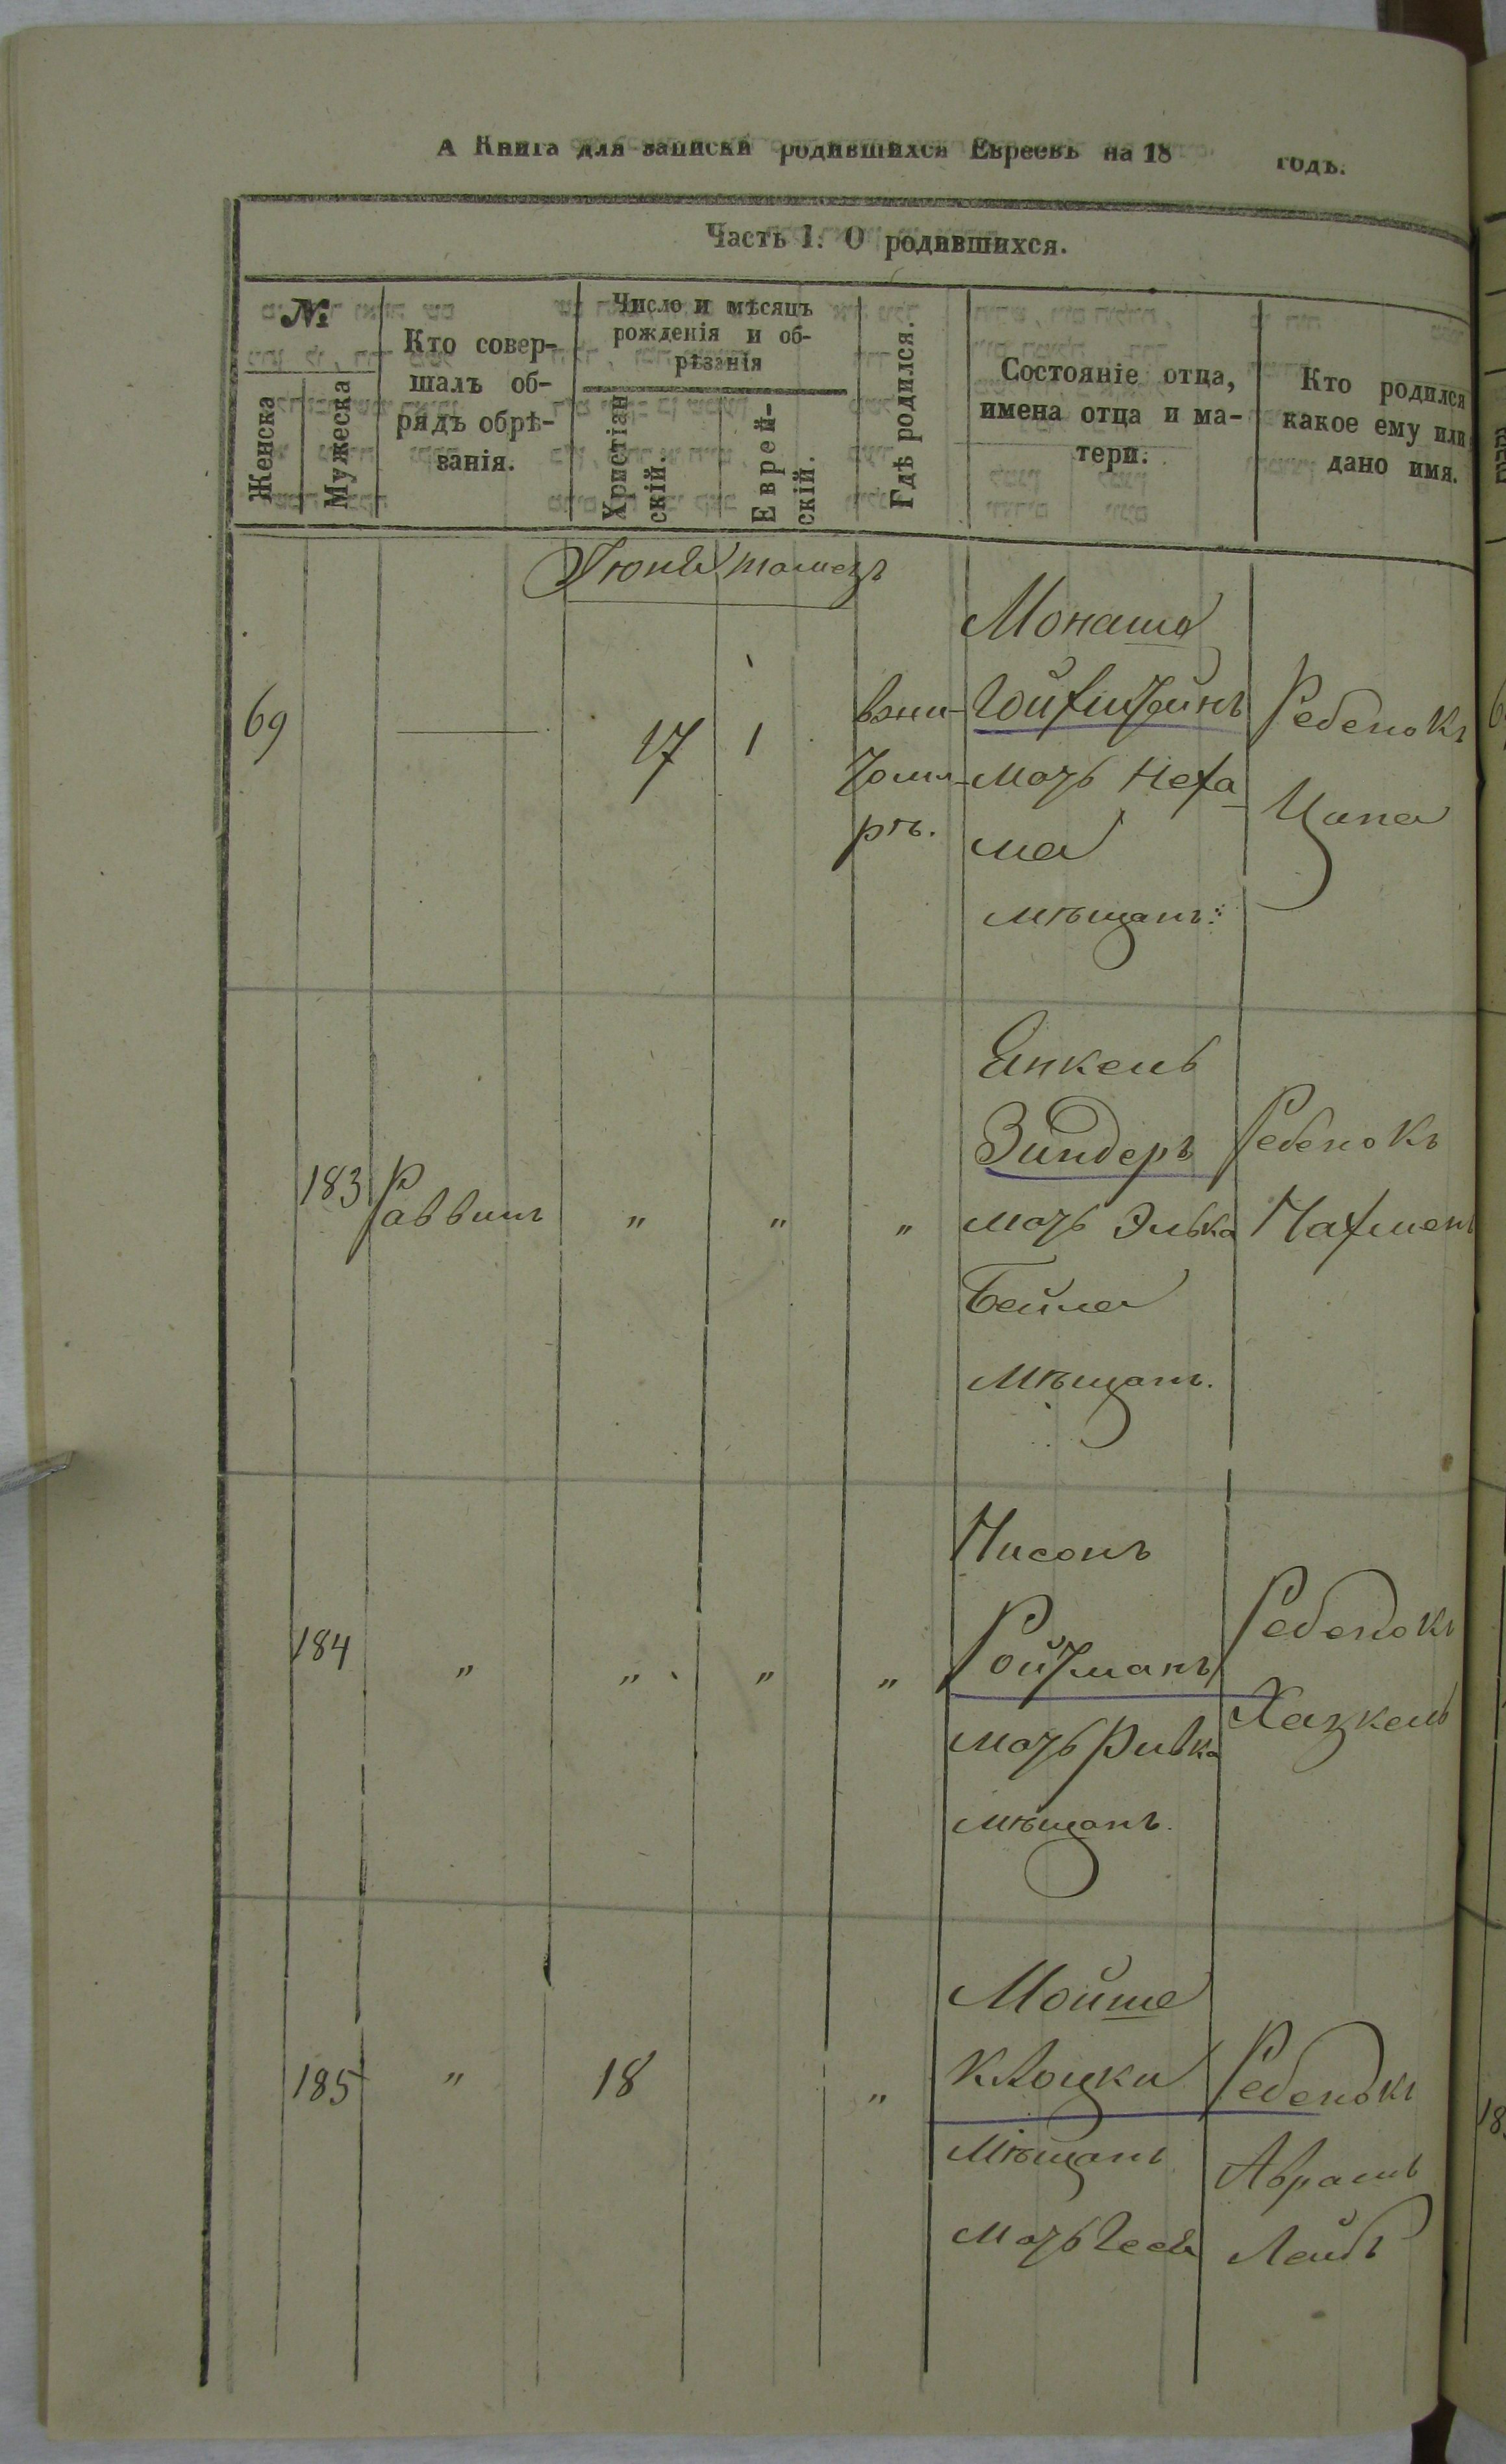 А Книга для записки родившихся Евреевъ на 18 годъ.
Часть 1. О родившихся.
№
Женска
Мужеска
Кто совер-
шалъ об-
рядъ обрѣ-
занія.
Число и мѣсяцъ
рожденія и об-
рѣзанія
Христіан
скій.
Еврей-
скій.
Гдѣ родился.
Состояніе отца,
имена отца и ма-
тери.
Кто родился
какое ему или
дано имя.
Іюня
69
17
1
Монаша
мать Неха
ма
мѣщан:
Ребенокъ
Ципа
183
Раввинъ
"
"
"
Янкель
Зиндеръ
мать Элька
Бейла
Мѣщан.
Ребенокъ
Нахмен
184
"
"
"
"
Нисонъ
Ройтманъ
мать Ривка
мѣщанъ.
Ребенокъ
Хазкель
185
"
18
"
Мойше
Клоцки
Мѣщанъ
Ребенокъ
Аврамъ
Лейбъ